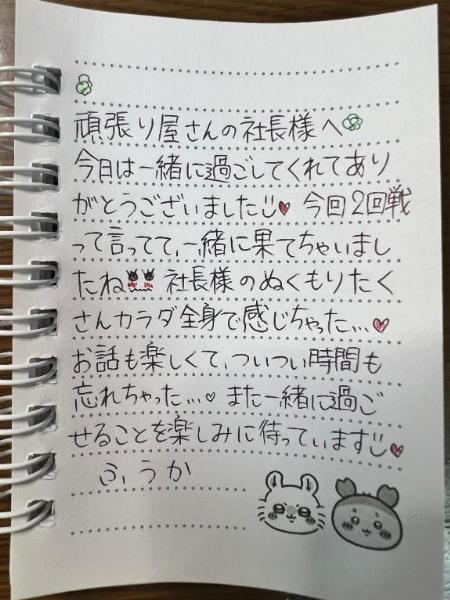 頑張り屋さんの社長様へ
今日は一緒に過ごしてくれてあり
がとうございました 今回2回戦
って言ってて、一緒に果てちゃいまし
たね 社長様のぬくもりたく
さんカラダ全身で感じちゃった...
お話も楽しくて、ついつい時間も
忘れちゃった... また一緒に過ご
せることを楽しみに待っています
ふうか